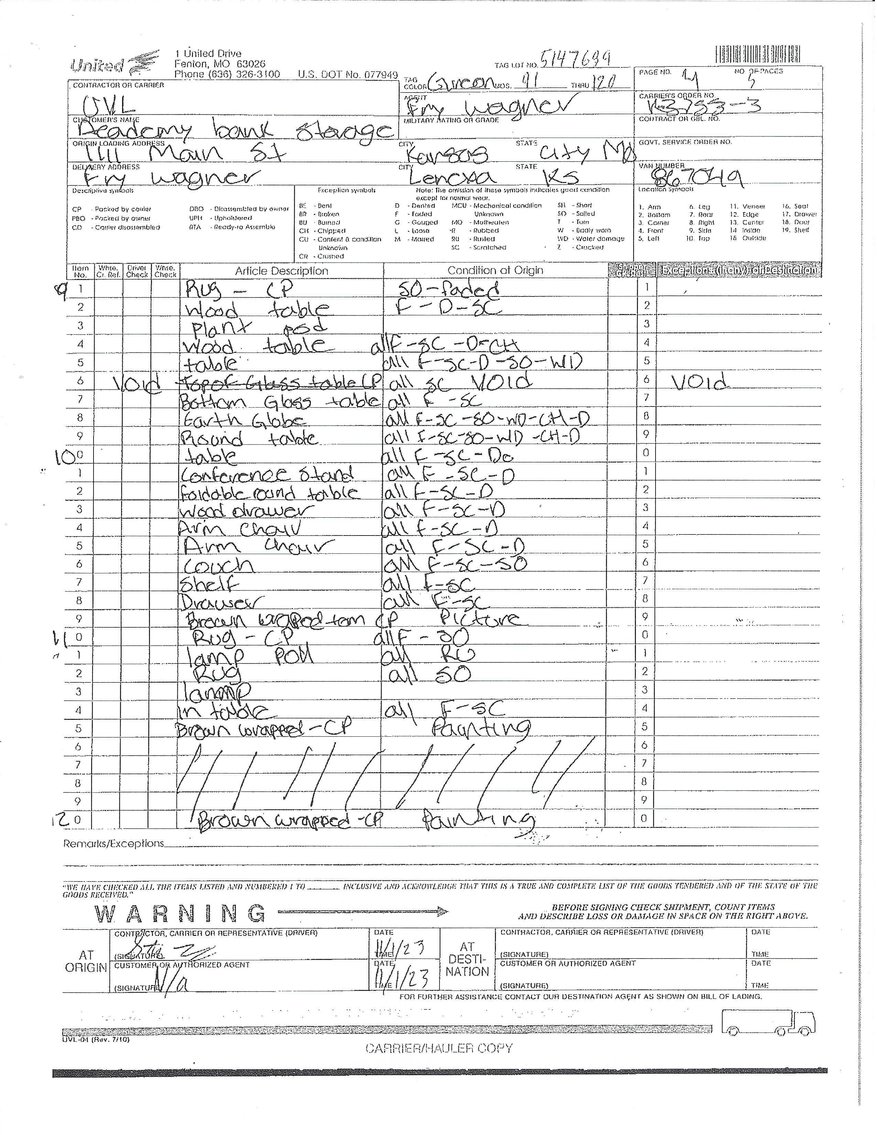 United
1 United Drive
Fenton, MO 63026
Phone (636) 326-3100 U.S. DOT No. 077949
TAG LOT NO. 5147699
TAG COLOR Green NOS. 91 THRU 120
PAGE NO. 4 NO. OF PAGES 5
CONTRACTOR OR CARRIER
UVL
AGENT
Fry Wagner
CARRIER'S ORDER NO.
CUSTOMER'S NAME
Academy bank Storage
MILITARY RATING OR GRADE
CONTRACT OR GBL NO.
ORIGIN LOADING ADDRESS
1111 Main St
CITY
Kansas City
STATE
MO
GOVT. SERVICE ORDER NO.
DELIVERY ADDRESS
Fry Wagner
CITY
Lenexa
STATE
KS
VAN NUMBER
867049
Descriptive symbols
CP - Packed by carrier
PBO - Packed by owner
CD - Carrier disassembled
DBO - Disassembled by owner
UPH - Upholstered
RTA - Ready-to-Assemble
Exception symbols
Note: The omission of these symbols indicates good condition except for normal wear.
BE - Bent
BR - Broken
BU - Burned
CH - Chipped
CU - Content & condition Unknown
CR - Crushed
D - Dented
F - Faded
G - Gouged
L - Loose
M - Marred
MCU - Mechanical condition Unknown
MO - Motheaten
R - Rubbed
RU - Rusted
SC - Scratched
SH - Short
SO - Soiled
T - Torn
W - Badly worn
WD - Water damage
Z - Cracked
Location symbols
1. Arm
2. Bottom
3. Corner
4. Front
5. Left
6. Leg
7. Rear
8. Right
9. Side
10. Top
11. Veneer
12. Edge
13. Center
14. Inside
15. Outside
16. Seat
17. Drawer
18. Door
19. Shelf
Item No. Whse. Cr. Ref. Driver Check Whse. Check Article Description Condition at Origin Exceptions (if any) at Destination
9 1 Rug - CP SO-faded 1
2 Wood table F-D-SC 2
3 Plant pod 3
4 Wood table all F-SC-D-CH 4
5 table all F-SC-D-SO-WD 5
6 VOID Top of Glass table CP all SC VOID 6 VOID
7 Bottom Glass table all F-SC 7
8 Earth Globe all F-SC-SO-WD-CH-D 8
9 Round table all F-SC-SO-WD-CH-D 9
10 0 table all F-SC-Do 0
1 Conference Stand all F-SC-D 1
2 Foldable round table all F-SC-D 2
3 Wood drawer all F-SC-D 3
4 Arm Chair all F-SC-D 4
5 Arm Chair all F-SC-D 5
6 Couch all F-SC-SO 6
7 Shelf all F-SC 7
8 Drawer all F-SC 8
9 Brown wrapped CP Picture 9
11 0 Rug - CP all F-SO 0
1 lamp all RU 1
2 Rug all SO 2
3 3
4 table all F-SC 4
5 Brown wrapped-CP Paunting 5
6 6
7 7
8 8
9 9
12 0 Brown wrapped-CP Paunting 0
Remarks/Exceptions
"WE HAVE CHECKED ALL THE ITEMS LISTED AND NUMBERED 1 TO ______ INCLUSIVE AND ACKNOWLEDGE THAT THIS IS A TRUE AND COMPLETE LIST OF THE GOODS TENDERED AND OF THE STATE OF THE GOODS RECEIVED."
WARNING
BEFORE SIGNING CHECK SHIPMENT, COUNT ITEMS
AND DESCRIBE LOSS OR DAMAGE IN SPACE ON THE RIGHT ABOVE.
AT ORIGIN
CONTRACTOR, CARRIER OR REPRESENTATIVE (DRIVER)
(SIGNATURE)
DATE
11/1/23
TIME
CUSTOMER OR AUTHORIZED AGENT
(SIGNATURE) N/a
DATE
11/1/23
TIME
AT DESTINATION
CONTRACTOR, CARRIER OR REPRESENTATIVE (DRIVER)
(SIGNATURE)
DATE
TIME
CUSTOMER OR AUTHORIZED AGENT
(SIGNATURE)
DATE
TIME
FOR FURTHER ASSISTANCE CONTACT OUR DESTINATION AGENT AS SHOWN ON BILL OF LADING.
UVL-04 (Rev. 7/10)
CARRIER/HAULER COPY